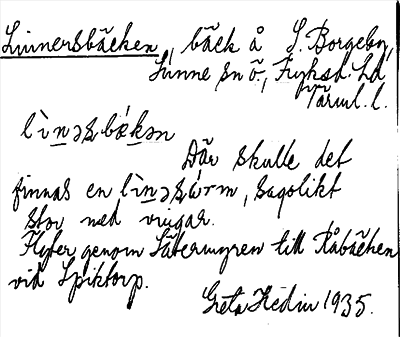 Linnersbäcken, bäck å S. Borgeby,
Sunne sn ö, Fryksd. hd
Värml. l.
lìn̲əʂbǽk̲ən
Där skulle det
finnas en lìn̲əʂórm, sagolikt
stor med vingar.
Flyter genom Sätermyren till Råbäcken
vid Spiktorp.
Greta Hedin 1935.